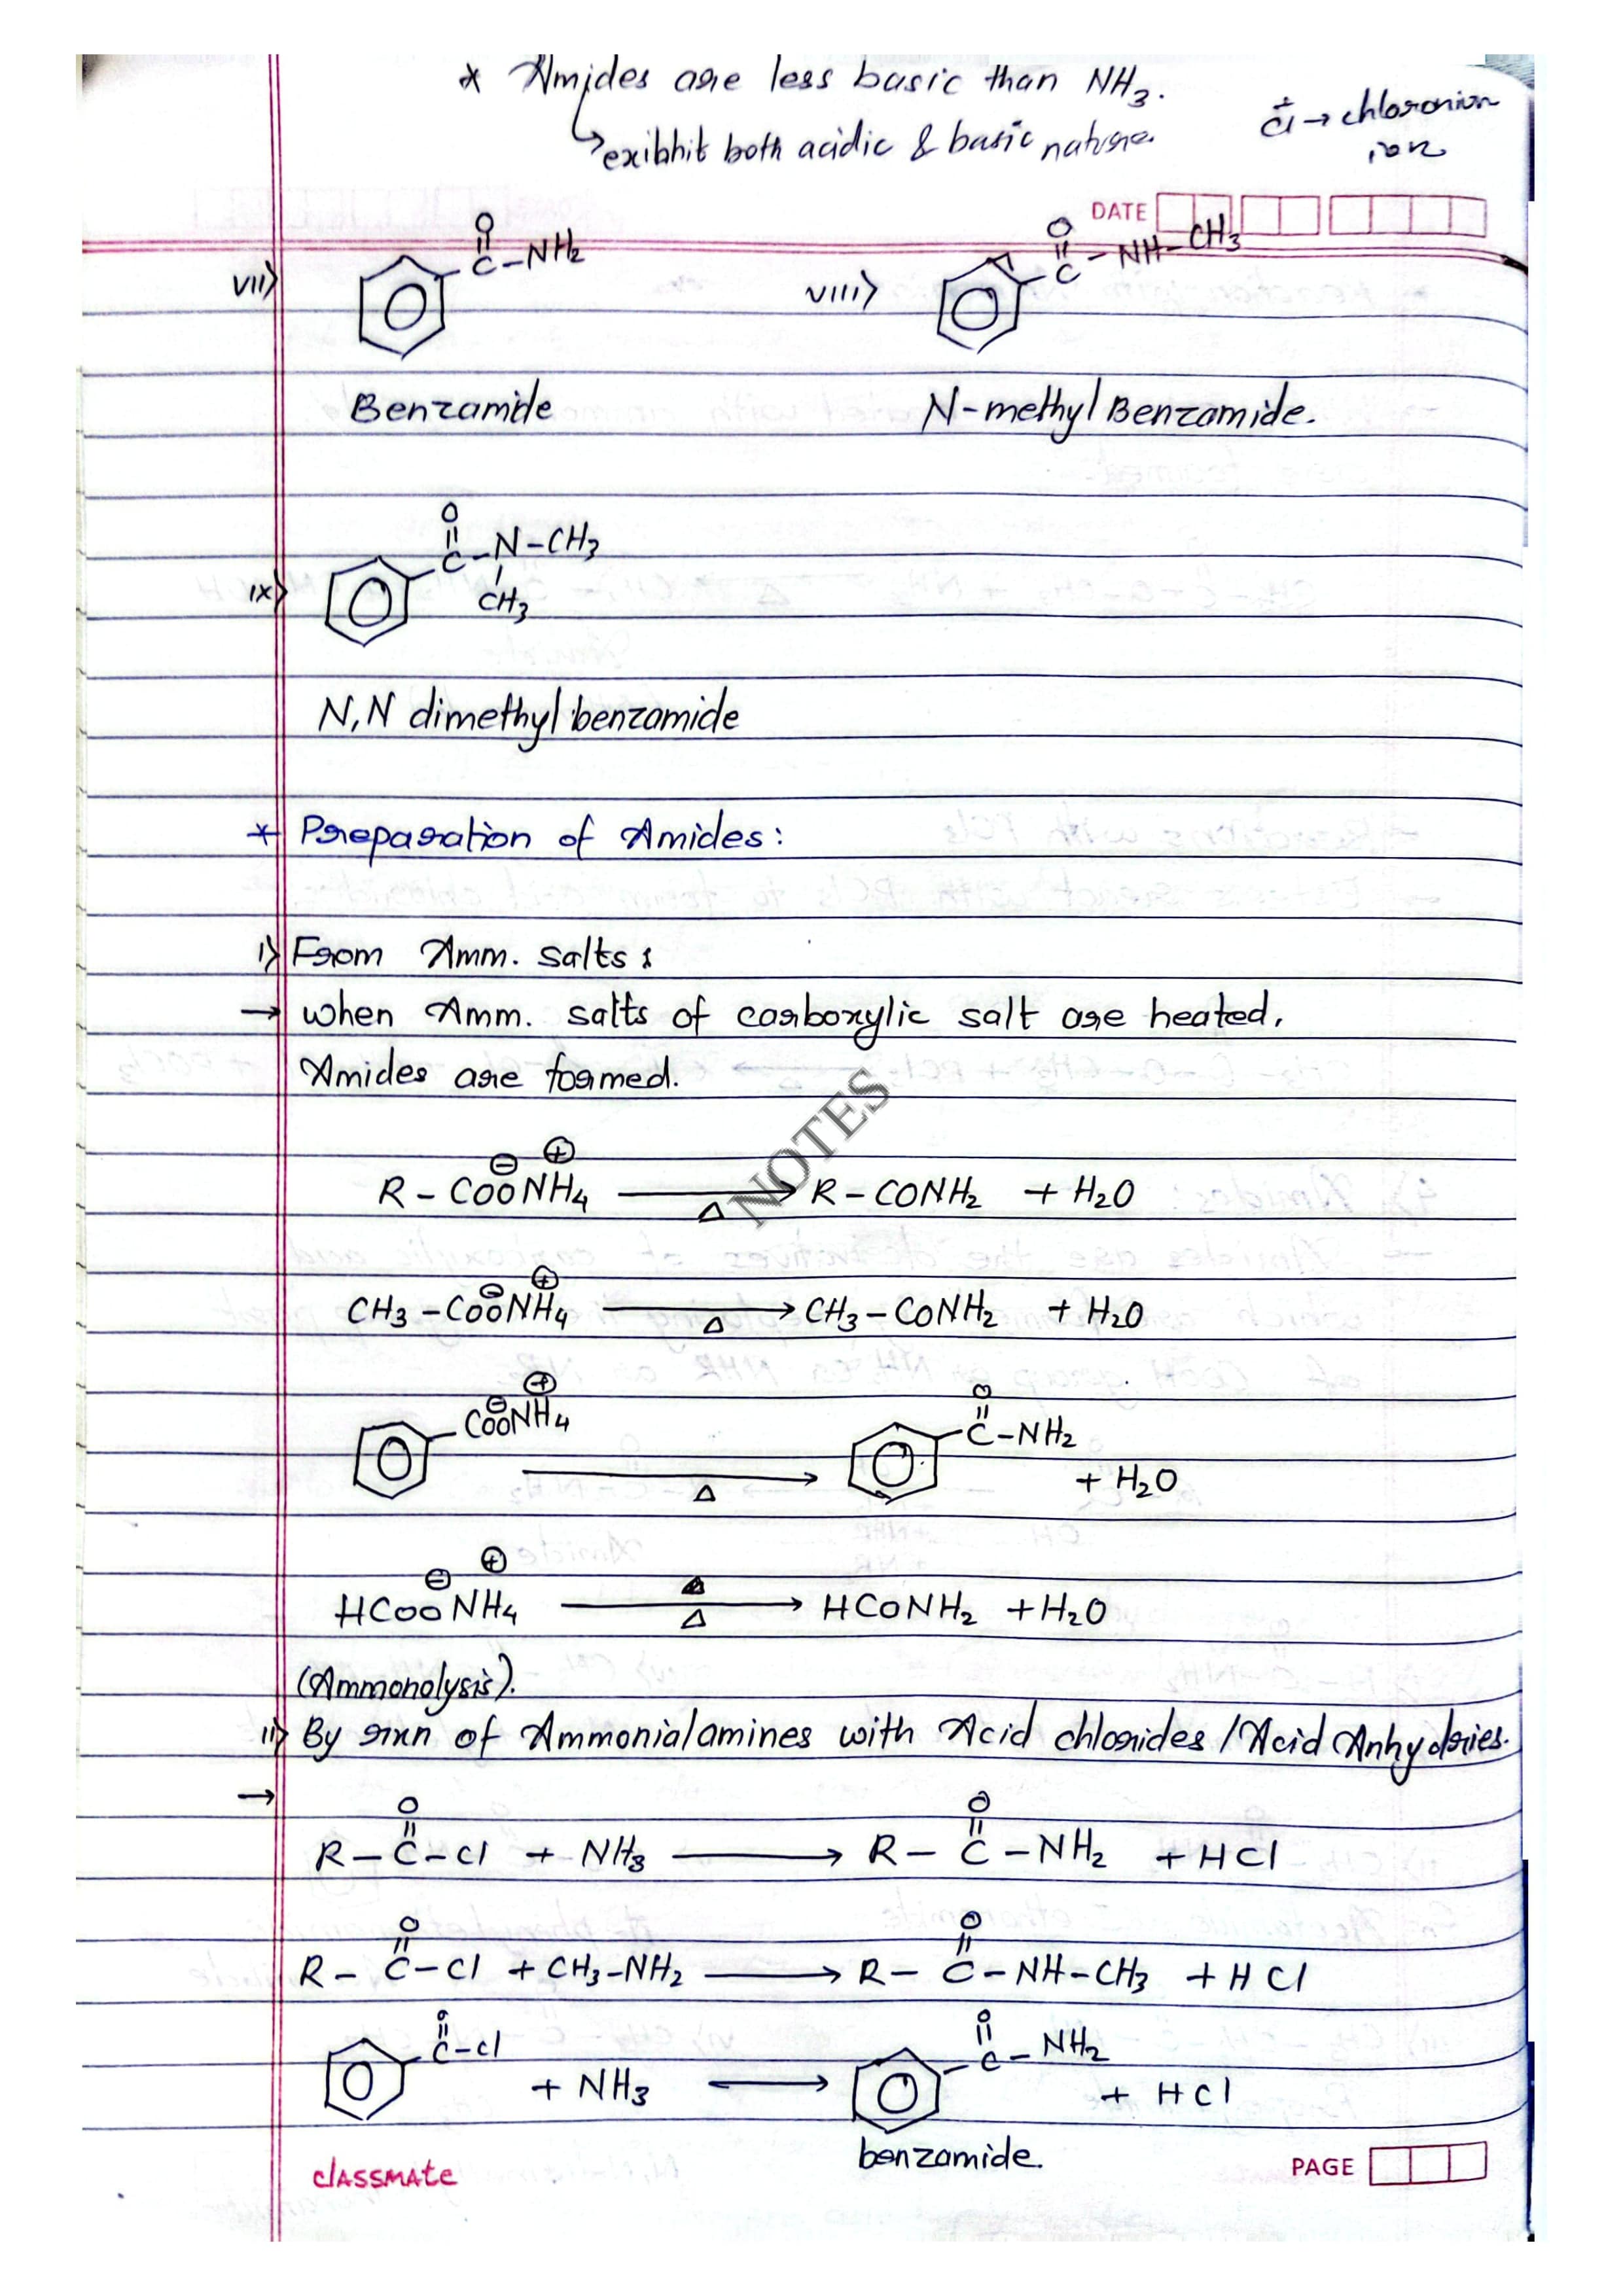 * Amides are less basic than NH3.
↳ exibhit both acidic & basic nature.
Cl⁺ → chloronion
ion
DATE
vii)
O
||
C-NH2
viii)
O
||
C-NH-CH3
Benzamide
N-methyl Benzamide.
ix)
O
||
C-N-CH3
|
CH3
N,N dimethyl benzamide
* Preparation of Amides:
i) From Amm. salts:
→ when Amm. salts of carboxylic salt are heated,
Amides are formed.
R-COO⊖NH4⊕ →Δ R-CONH2 + H2O
CH3-COO⊖NH4⊕ →Δ CH3-CONH2 + H2O
COO⊖NH4⊕ →Δ
O
||
C-NH2
+ H2O
HCOO⊖NH4⊕ →Δ HCONH2 + H2O
(Ammonolysis).
ii) By rxn of Ammonia/amines with Acid chlorides / Acid Anhydries.
→
O O
|| ||
R-C-Cl + NH3 → R-C-NH2 + HCl
O O
|| ||
R-C-Cl + CH3-NH2 → R-C-NH-CH3 + HCl
O O
|| ||
C-Cl + NH3 → C-NH2 + HCl
benzamide.
classmate
PAGE
NOTES